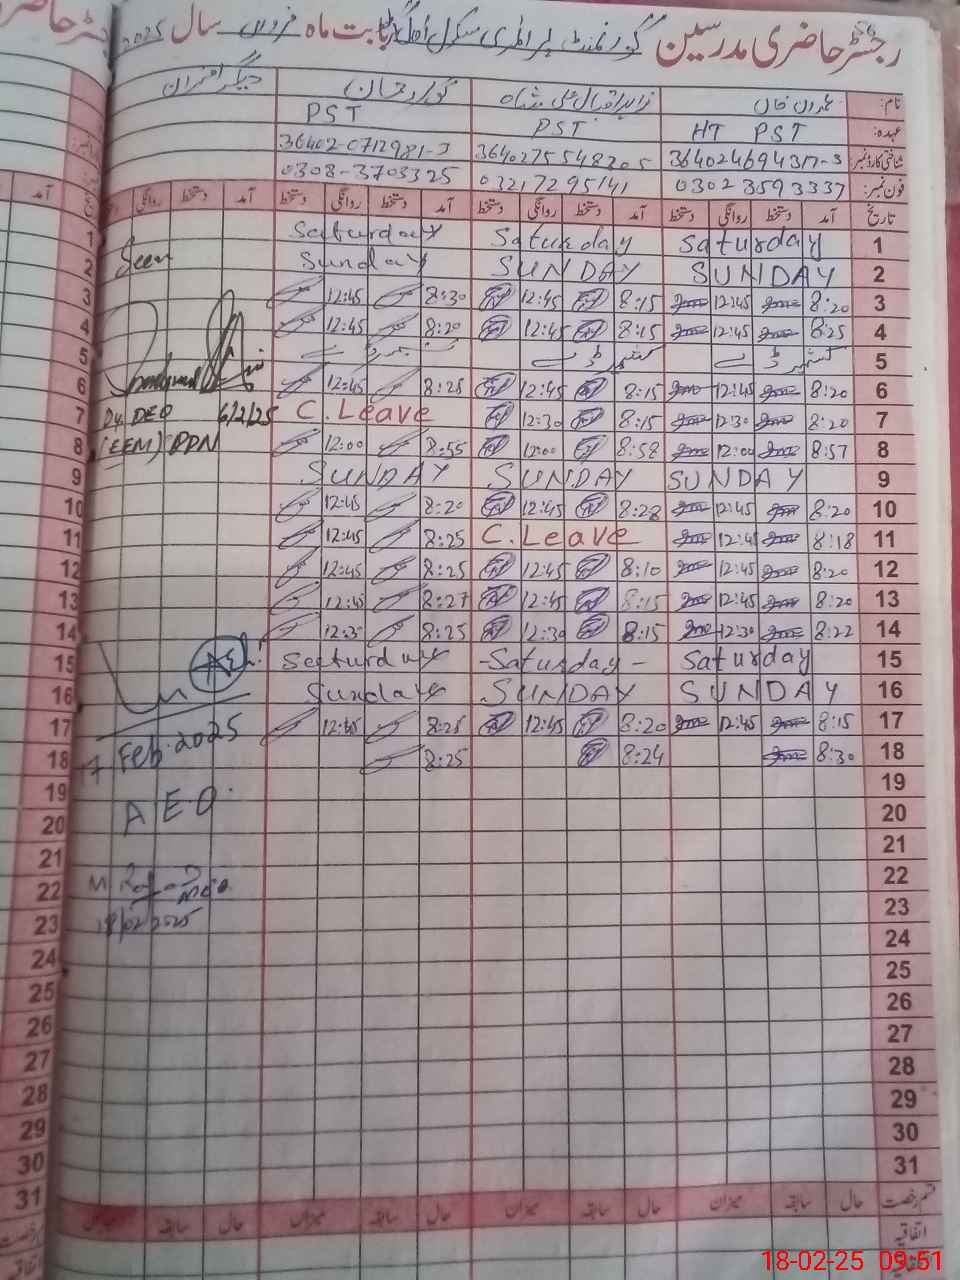 رجسٹر حاضری مدرسین گورنمنٹ پرائمری سکول بابت ماہ فروری سال 2025
نام: زاہد اقبال علی شاہ دیگر افسران
عہدہ: HT PST PST PST
شناختی کارڈ نمبر: 3640275548205 36402-0712981-3
فون نمبر: 03023593337 03217295141 0308-3703325
تاریخ آمد دستخط روانگی دستخط آمد دستخط روانگی دستخط آمد دستخط روانگی دستخط آمد دستخط روانگی
1 Saturday Saturday Saturday 1
2 SUNDAY SUNDAY Sunday Seen 2
3 8:20 12:45 8:15 12:45 8:30 12:45 3
4 8:25 12:45 8:15 12:45 8:20 12:45 4
5 کشمیر ڈے کشمیر ڈے 5
6 8:20 12:45 8:15 12:45 8:25 12:45 6
7 8:20 12:30 8:15 12:30 C. Leave 6/2/25 Dy. DEO 7
8 8:57 12:00 8:58 12:00 8:55 12:00 (EEM) PPN 8
9 SUNDAY SUNDAY SUNDAY 9
10 8:20 12:45 8:28 12:45 8:20 12:45 10
11 8:18 12:45 C. Leave 8:25 12:45 11
12 8:20 12:45 8:10 12:45 8:25 12:45 12
13 8:20 12:45 8:15 12:45 8:27 12:45 13
14 8:22 12:30 8:15 12:30 8:25 12:30 14
15 Saturday -Saturday- Saturday 15
16 SUNDAY SUNDAY Sunday 16
17 8:15 12:45 8:20 12:45 8:25 12:45 17
18 8:30 8:24 8:25 Feb. 2025 18
19 19
20 A.E.O. 20
21 21
22 22
23 18/02/2025 23
24 24
25 25
26 26
27 27
28 28
29 29
30 30
31 31
قسم رخصت حال سابقہ میزان حال سابقہ میزان حال سابقہ میزان حال سابقہ
اتفاقیہ
18-02-25 09:51